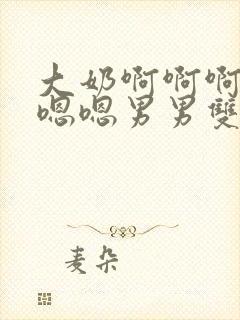 大奶啊啊啊
嗯嗯男男雙
麦朵